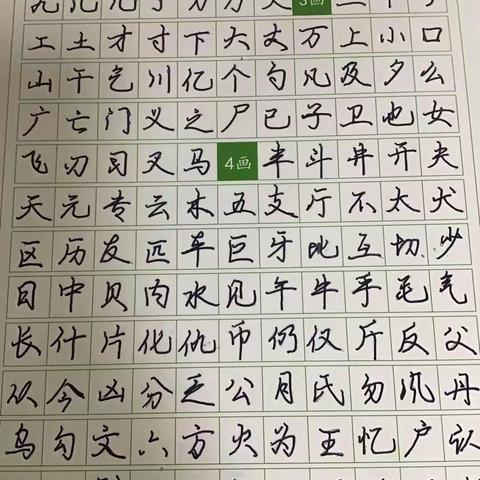 3画
工土才寸下大丈万上小口
山干乞川亿个勺凡及夕么
广亡门义之尸已子卫也女
飞刃习叉马4画丰斗井开夫
天元专云木五支厅不太犬
区历友匹车巨牙比互切少
日中贝内水见午牛手毛气
长什片化仇币仍仅斤反父
从今凶分乏公月氏勿风丹
乌勾文六方火为王忆户认